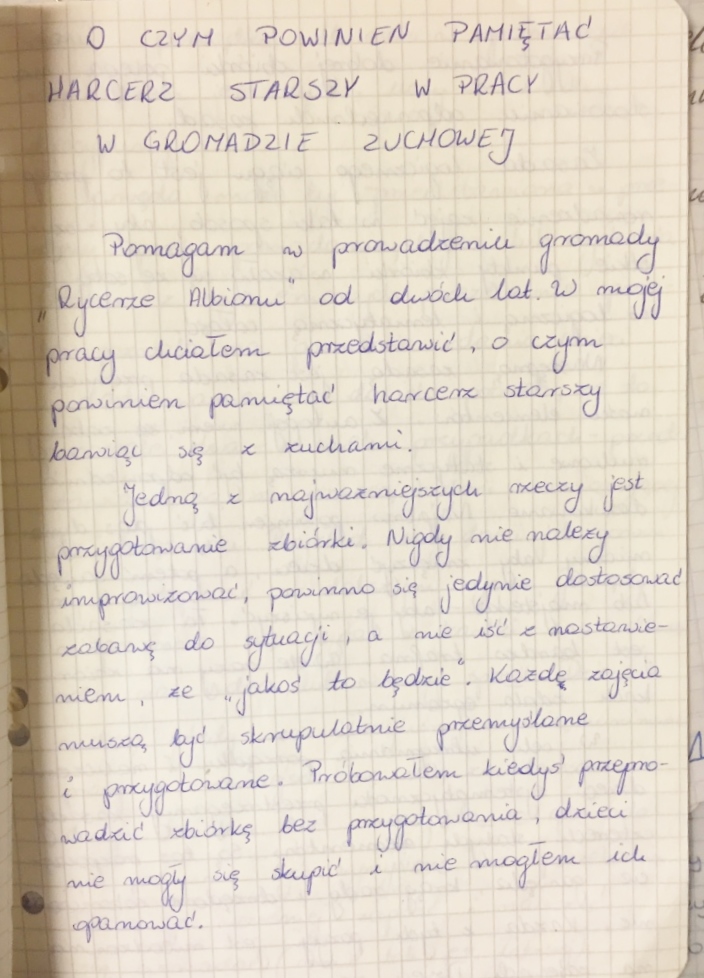 O CZYM POWINIEN PAMIĘTAĆ
HARCERZ STARSZY W PRACY
W GROMADZIE ZUCHOWEJ
Pomagam w prowadzeniu gromady
„Rycerze Albionu" od dwóch lat. W mojej
pracy chciałem przedstawić, o czym
powinien pamiętać harcerz starszy
bawiąc się z zuchami.
Jedną z najważniejszych rzeczy jest
przygotowanie zbiórki. Nigdy nie należy
improwizować, powinno się jedynie dostosować
zabawę do sytuacji, a nie iść z nastawie-
niem, że „jakoś to będzie". Każdę zajęcia
muszą być skrupulatnie przemyślane
i przygotowane. Próbowałem kiedyś przepro-
wadzić zbiórkę bez przygotowania, dzieci
nie mogły się skupić i nie mogłem ich
opanować.